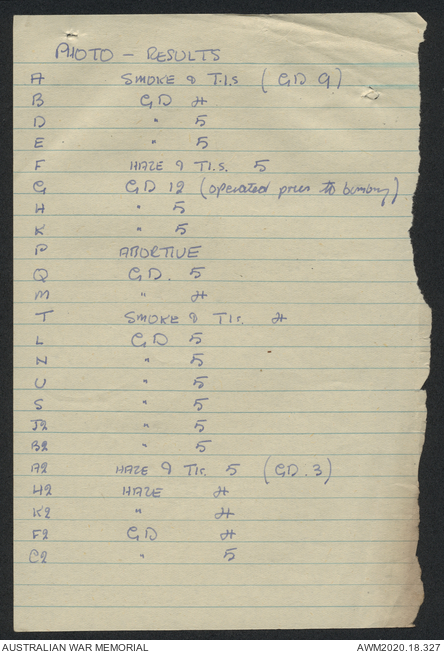 PHOTO - RESULTS
A SMOKE & T.I.S (GD 9)
B GD 4
D " 5
E " 5
F HAZE & T.I.S. 5
G GD 12 (operated prior to bombing)
H " 5
K " 5
P ABORTIVE
Q GD. 5
M " 4
T SMOKE & T.I.s. 4
L GD 5
N " 5
U " 5
S " 5
J2 " 5
B2 " 5
A2 HAZE & T.I.s. 5 (GD. 3)
H2 HAZE 4
K2 " 4
F2 GD 4
C2 " 5
AUSTRALIAN WAR MEMORIAL AWM2020.18.327